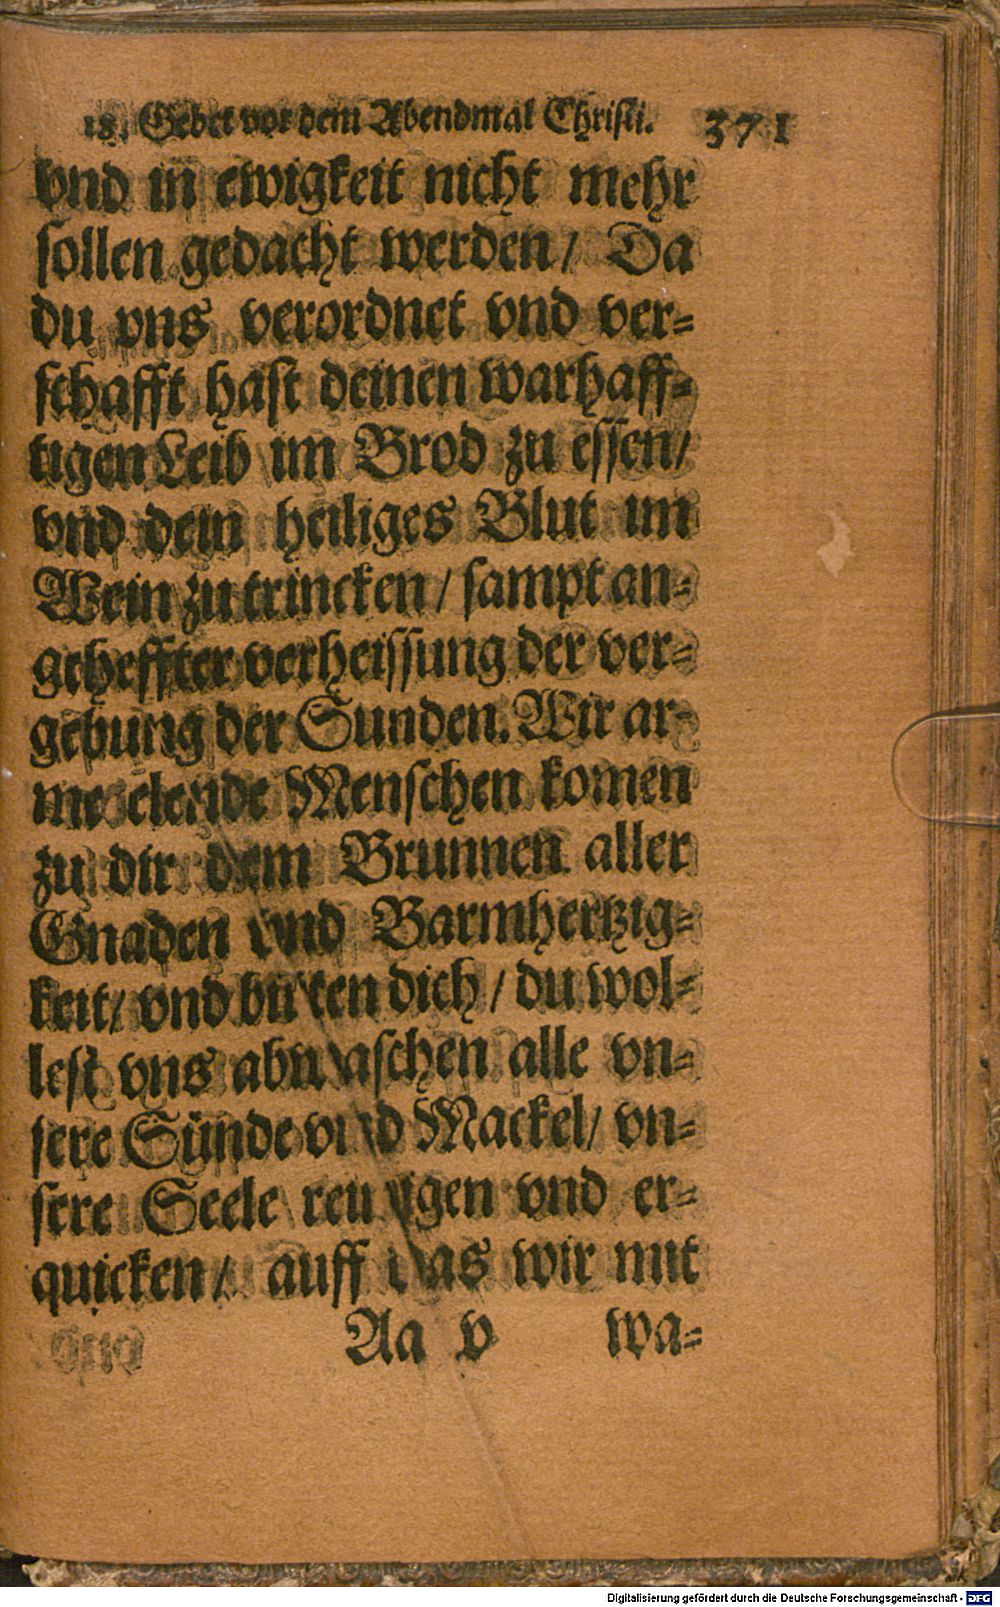 18. Gebet vor dem Abendmal Christi. 371
vnd in ewigkeit nicht mehr
sollen gedacht werden / Da
du vns verordnet vnd ver-
schafft hast deinen warhaff-
tigen Leib im Brod zu essen /
vnd dein heiliges Blut im
Wein zu trincken / sampt an-
geheffter verheissung der ver-
gebung der Sunden. Wir ar-
me elende Menschen komen
zu dir dem Brunnen aller
Gnaden vnd Barmhertzig-
keit / vnd bitten dich / du wol-
lest vns abwaschen alle vn-
sere Sünde vnd Mackel / vn-
sere Seele reinigen vnd er-
quicken / auff das wir mit
Aa v wa-
Digitalisierung gefördert durch die Deutsche Forschungsgemeinschaft - DFG